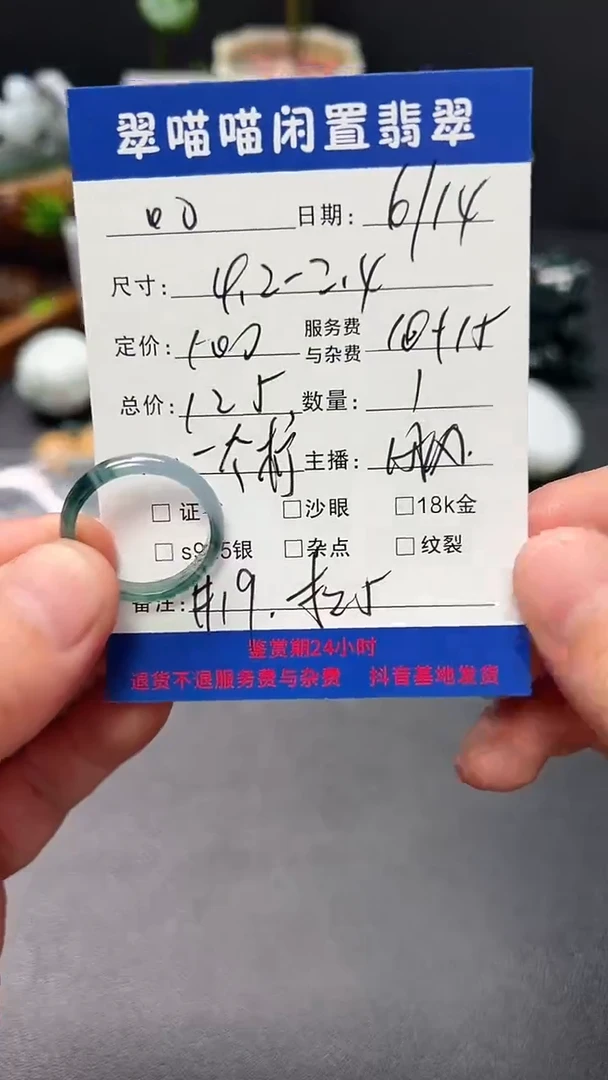 翠喵喵闲置翡翠
日期: 6/14
尺寸: 4.2-2.4
定价: 100 服务费与杂费 10+15
总价: 125 数量: 1
主播:
□ 证 □沙眼 □18k金
□ s925银 □杂点 □纹裂
备注: #19.
鉴赏期24小时
退货不退服务费与杂费 抖音基地发货